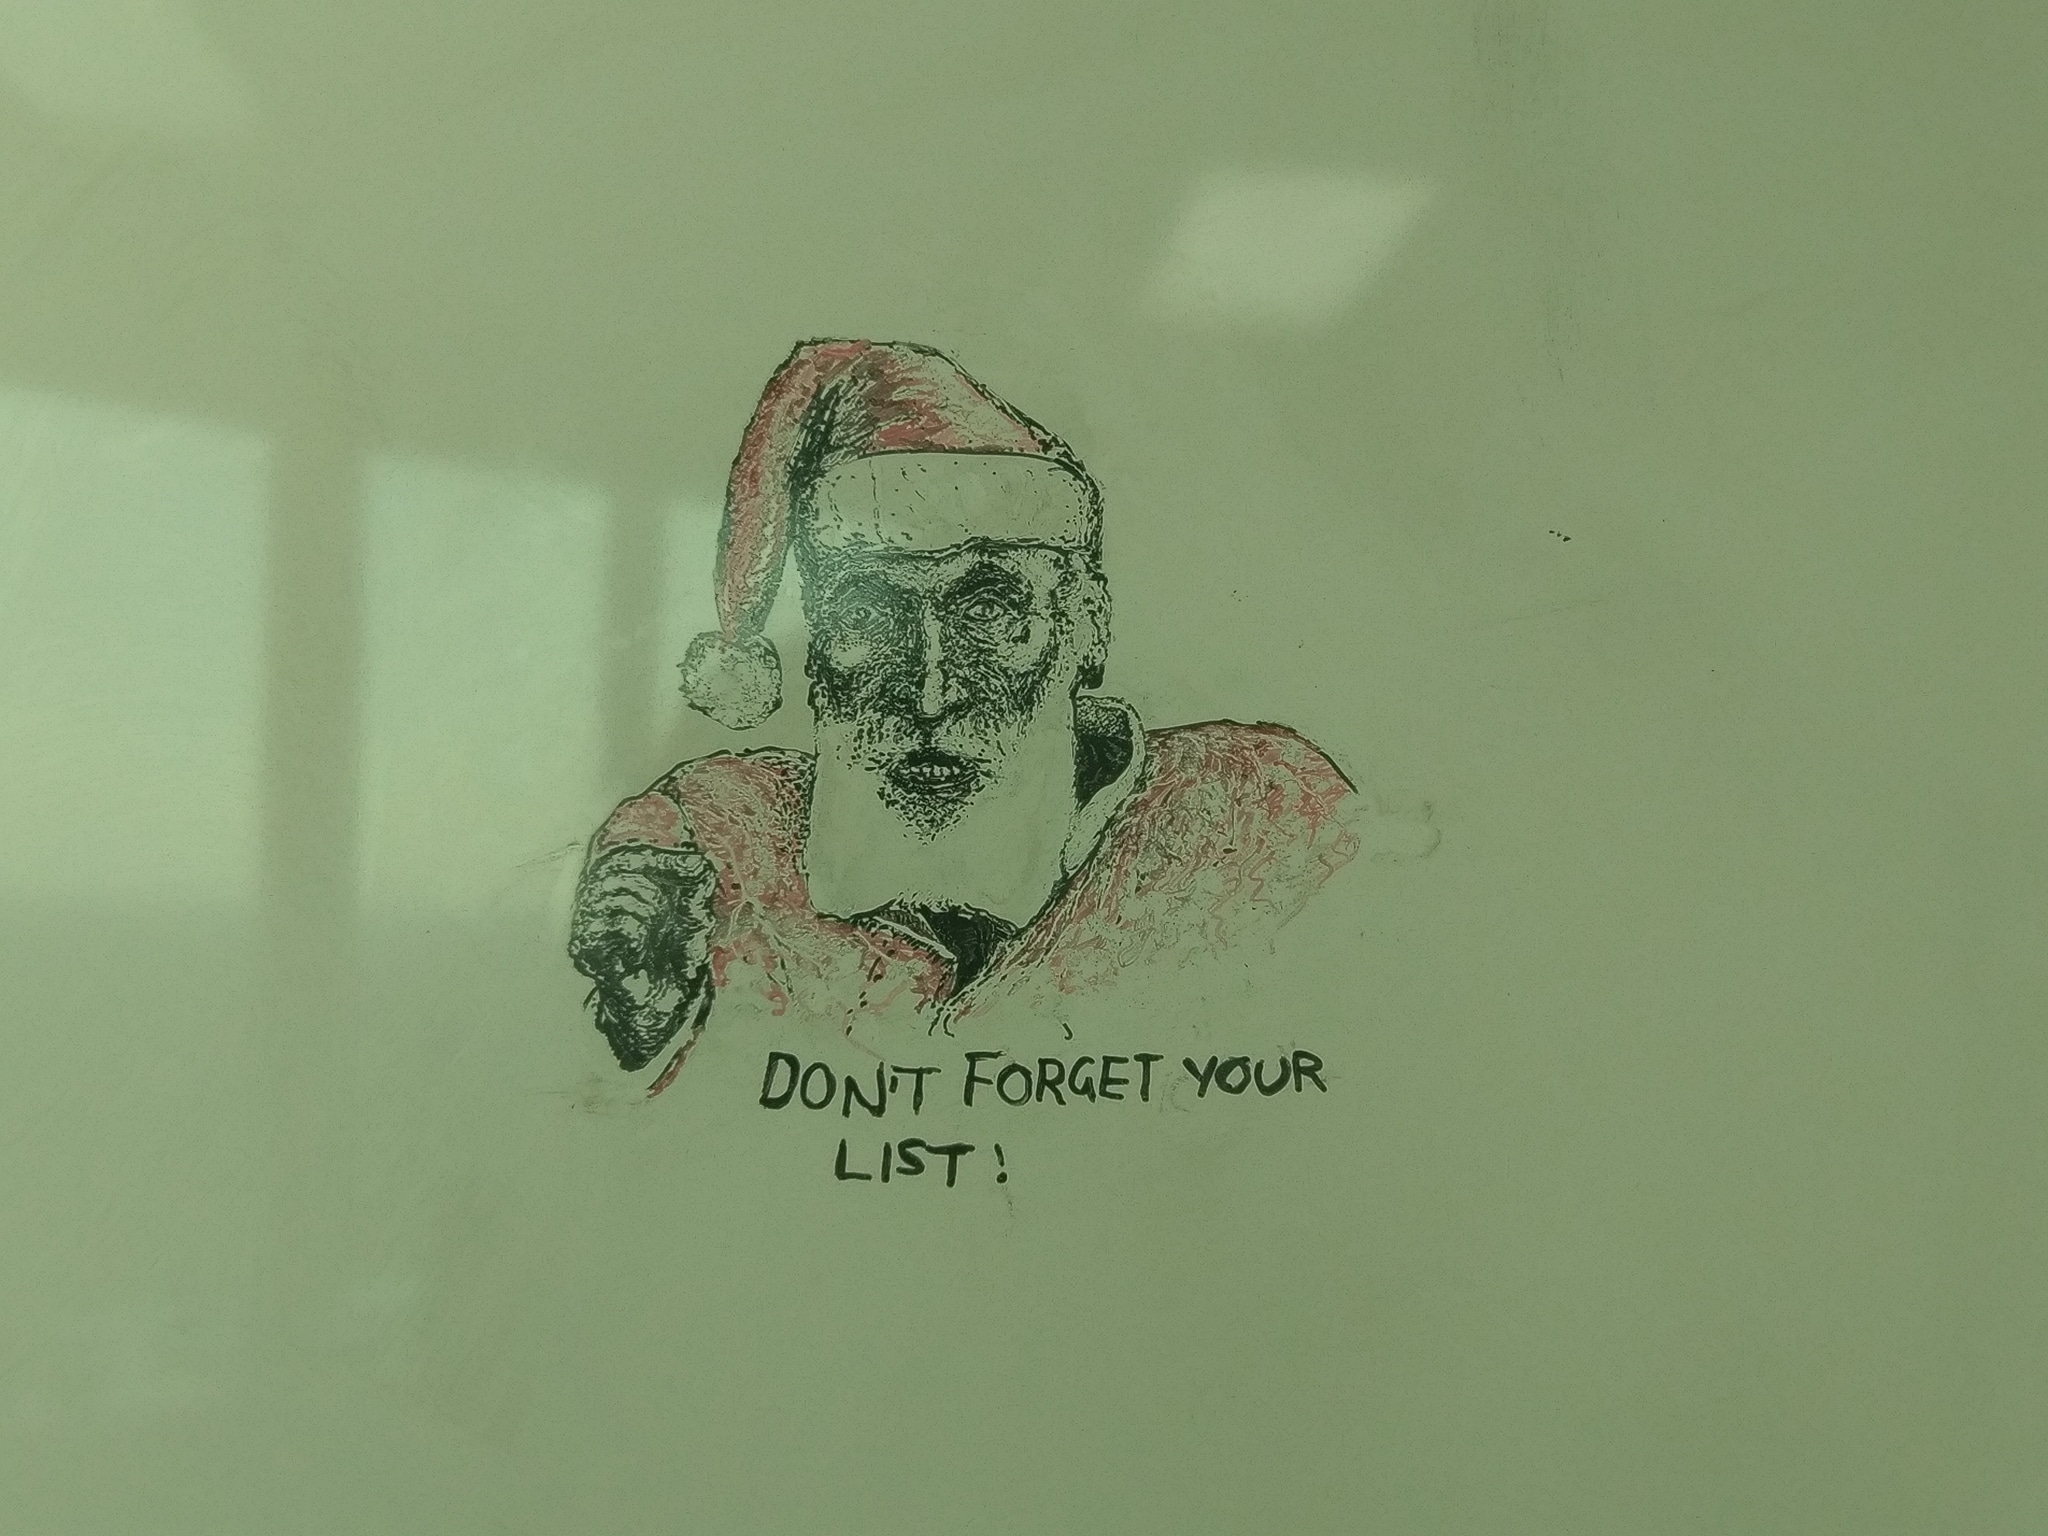 DON'T FORGET YOUR
LIST!